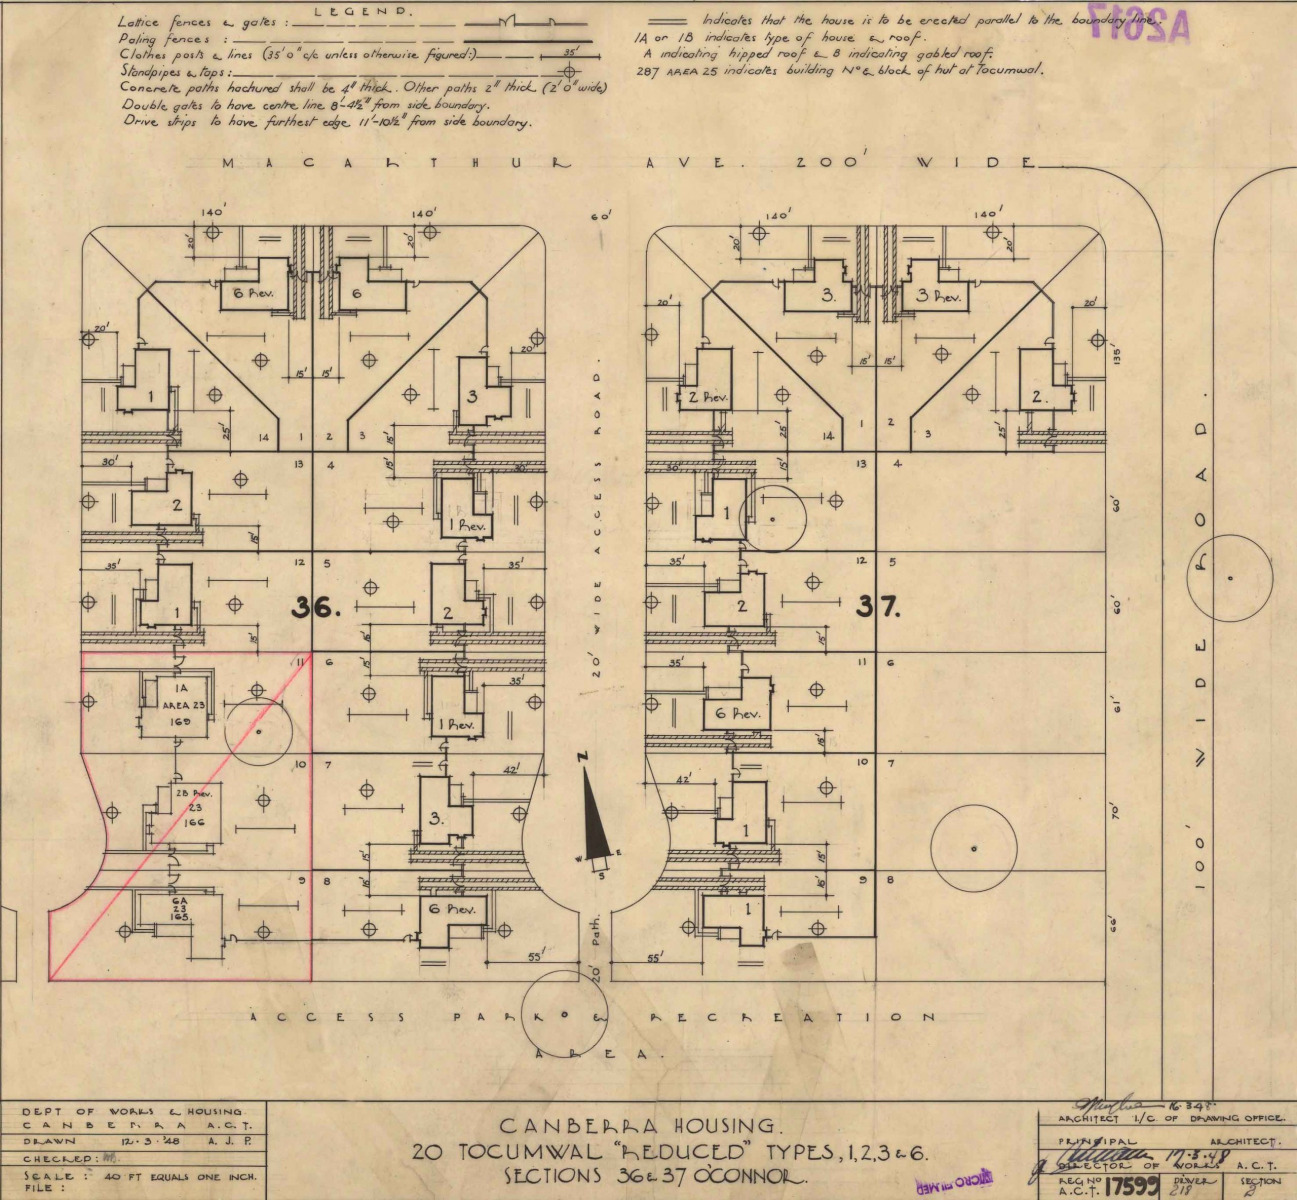 LEGEND.
Lattice fences & gates :
Paling fences :
Clothes posts & lines (35'0" c/c unless otherwise figured:) 35'
Standpipes & taps:
Concrete paths hachured shall be 4" thick. Other paths 2" thick (2'0" wide)
Double gates to have centre line 8'-4½" from side boundary.
Drive strips to have furthest edge 11'-10½" from side boundary.
Indicates that the house is to be erected parallel to the boundary line.
1A or 1B indicates type of house & roof.
A indicating hipped roof & B indicating gabled roof.
287 AREA 25 indicates building Nº & block of hut at Tocumwal.
A2617
MACARTHUR AVE. 200' WIDE
140' 140' 60' 140' 140'
20' 20' 20' 20'
6 Rev. 6 3. 3 Rev.
20' 20' 20' 20'
135'
15' 15' 15' 15'
1 3 2 Rev. 2.
25' 15' 25' 25'
14 1 2 3 14 1 2 3
13 4 13 4
30' 15' 30' 30' 15'
2 1 Rev. 1
60'
15'
12 5 12 5
35' 35' 35'
36. 37.
1 2 2
60'
15' 15' 15'
11 6 11 6
15' 35' 35'
1A
AREA 23
169
1 Rev. 6 Rev.
61'
15'
10 7 10 7
42' 42'
2B Rev.
23
166
3. 1
70'
15' 15'
9 8 9 8
15' 15'
6A
23
165
6 Rev. 1
66'
55' 55'
20' WIDE ACCESS ROAD.
20' Path.
100' WIDE ROAD.
N
W E
S
ACCESS PARK & RECREATION
AREA.
DEPT OF WORKS & HOUSING
CANBERRA A.C.T.
DRAWN 12·3·'48 A.J.P.
CHECKED:
SCALE: 40 FT EQUALS ONE INCH.
FILE:
CANBERRA HOUSING.
20 TOCUMWAL "REDUCED" TYPES, 1,2,3 & 6.
SECTIONS 36 & 37 O'CONNOR.
MICROFILMED
ARCHITECT I/C. OF DRAWING OFFICE.
PRINCIPAL ARCHITECT.
17-3-48
DIRECTOR OF WORKS A.C.T.
REG Nº A.C.T. 17599
DRAWER 218
SECTION 2